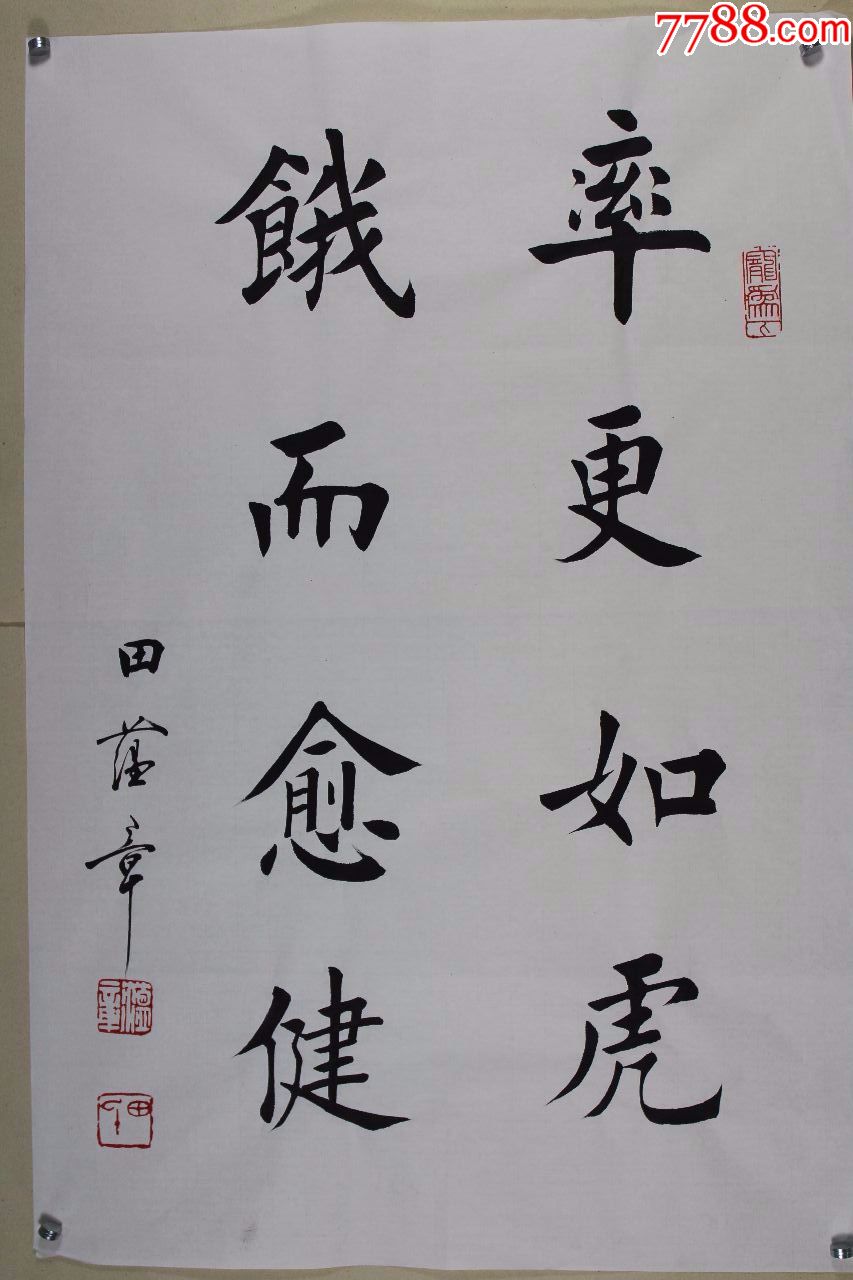 7788.com
率更如虎
餓而愈健
田蕴章